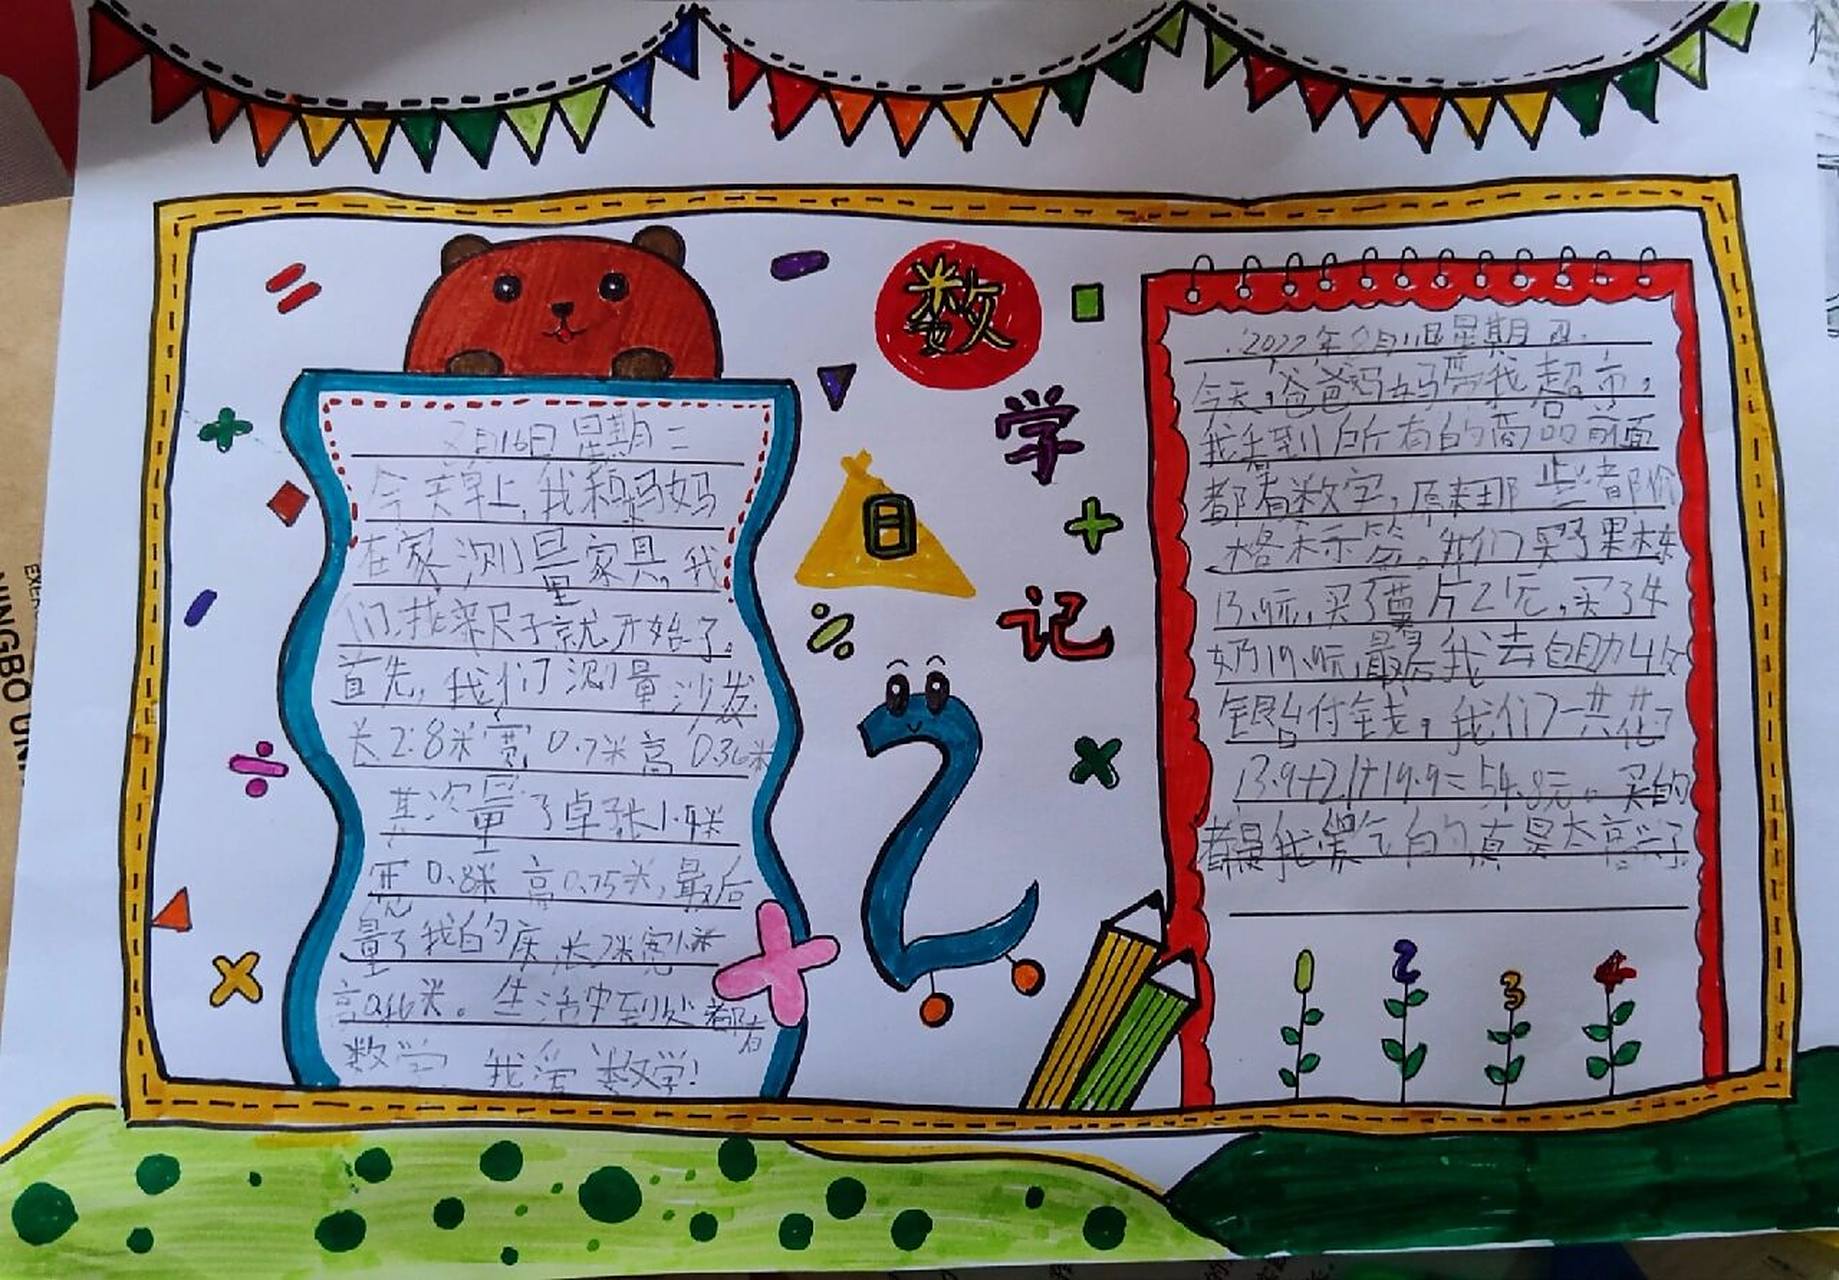 数
学
日
记
月16日 星期二
今天早上,我和妈妈
在家测量家具。我
们找来尺子就开始了。
首先,我们测量沙发
长2.8米宽0.7米高0.36米
其次量了桌子长1.4米
宽0.8米 高0.75米,最后
量了我的床 长2米宽1.米
高0.46米。生活中到处都有
数学 我爱数学!
2022年 月11日星期四
今天,爸爸妈妈带我超市,
我看到所有的商品前面
都有数字,原来那些都价
格标示签。我们买了果冻
13.9元,买了薯片21元,买了牛
奶19.9元,最后我去自助收
银台付钱,我们一共花了
13.9+21+19.9=54.8元。买的
都是我爱吃的真是太高兴了
2
1
2
3
4
NINGBO